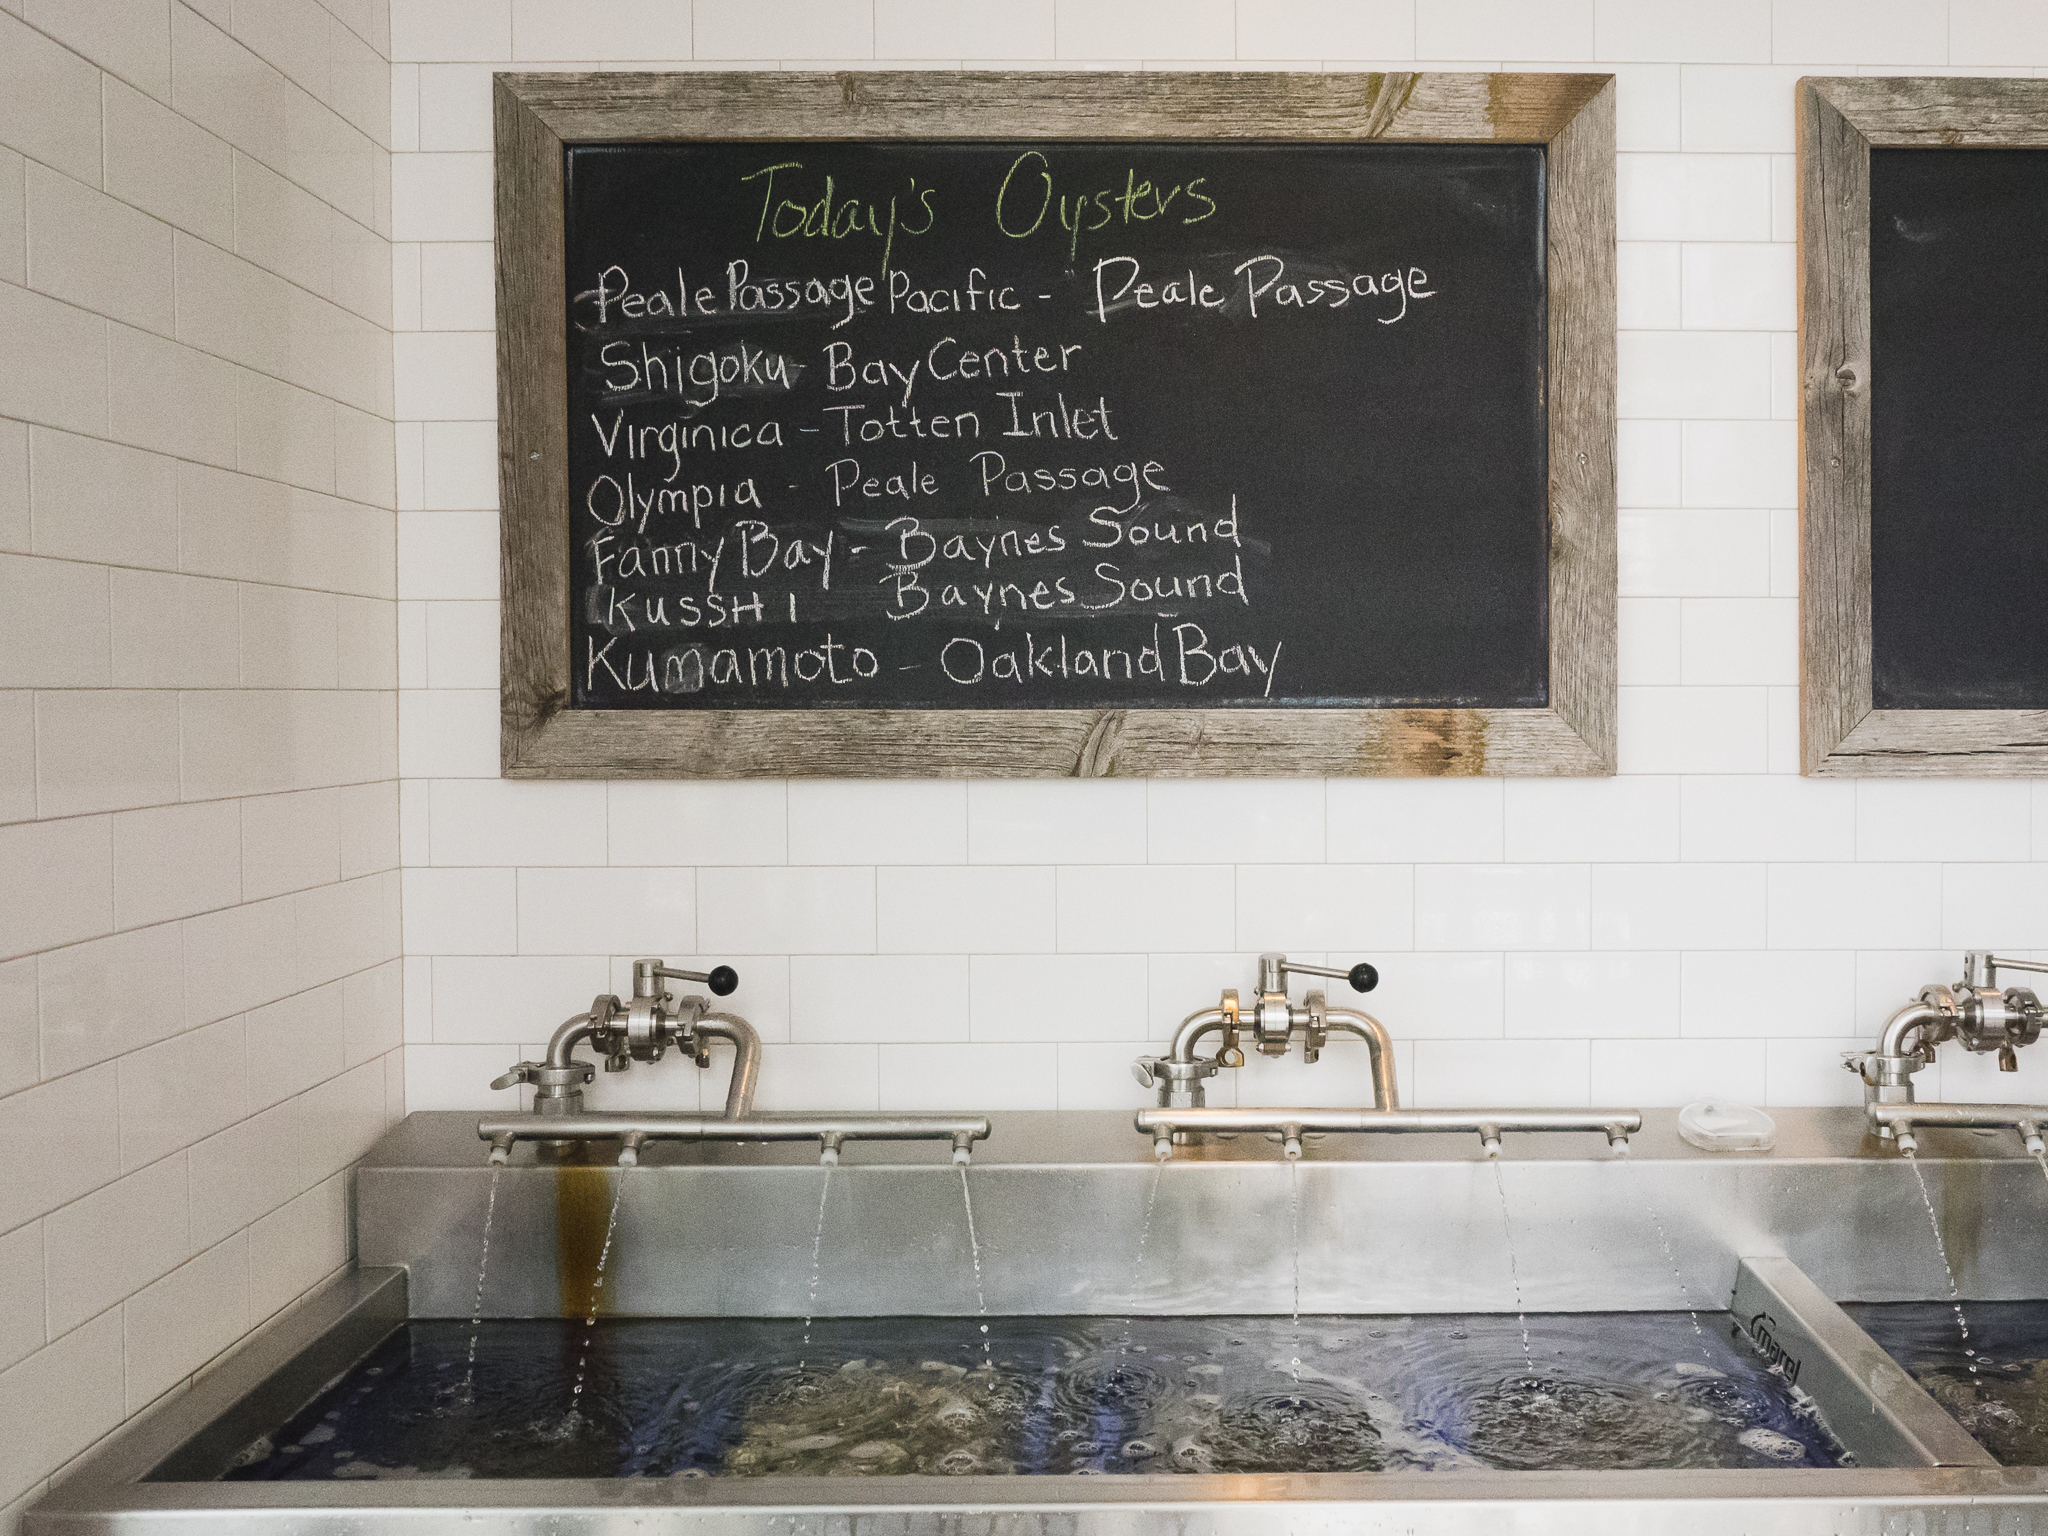 Today's Oysters
Peale Passage Pacific - Peale Passage
Shigoku - Bay Center
Virginica - Totten Inlet
Olympia - Peale Passage
Fanny Bay - Baynes Sound
KUSSHI Baynes Sound
Kumamoto - Oakland Bay
marel